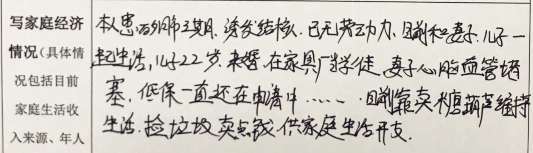 写家庭经济
情况(具体情
况包括目前
家庭生活收
入来源、年人
本人患矽肺三期、诱发结核、已无劳动力、目前和妻子、儿子一
起生活,儿子22岁,未婚,在家具厂学徒,妻子心脑血管堵
塞,低保一直还在申请中……,目前靠卖糖葫芦维持
生活、捡垃圾卖点钱供家庭生活开支.